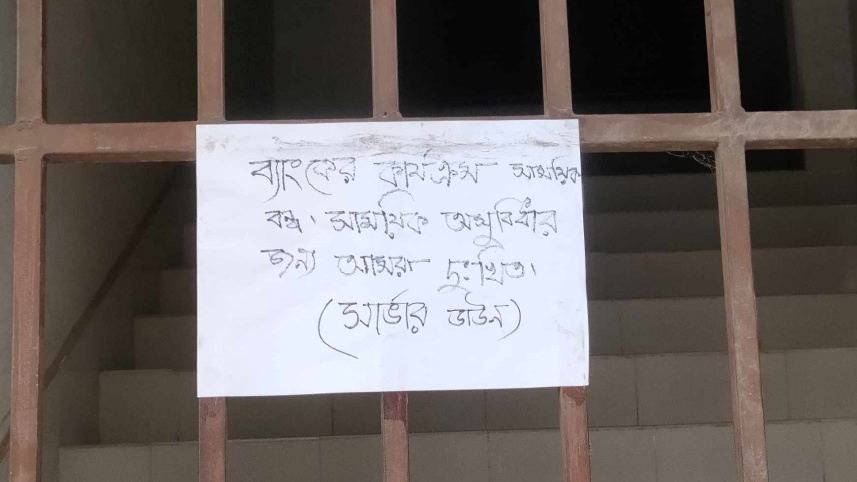 ব্যাংকের কার্যক্রম সাময়িক
বন্ধ। সাময়িক অসুবিধার
জন্য আমরা দুঃখিত।
(সার্ভার ডাউন)